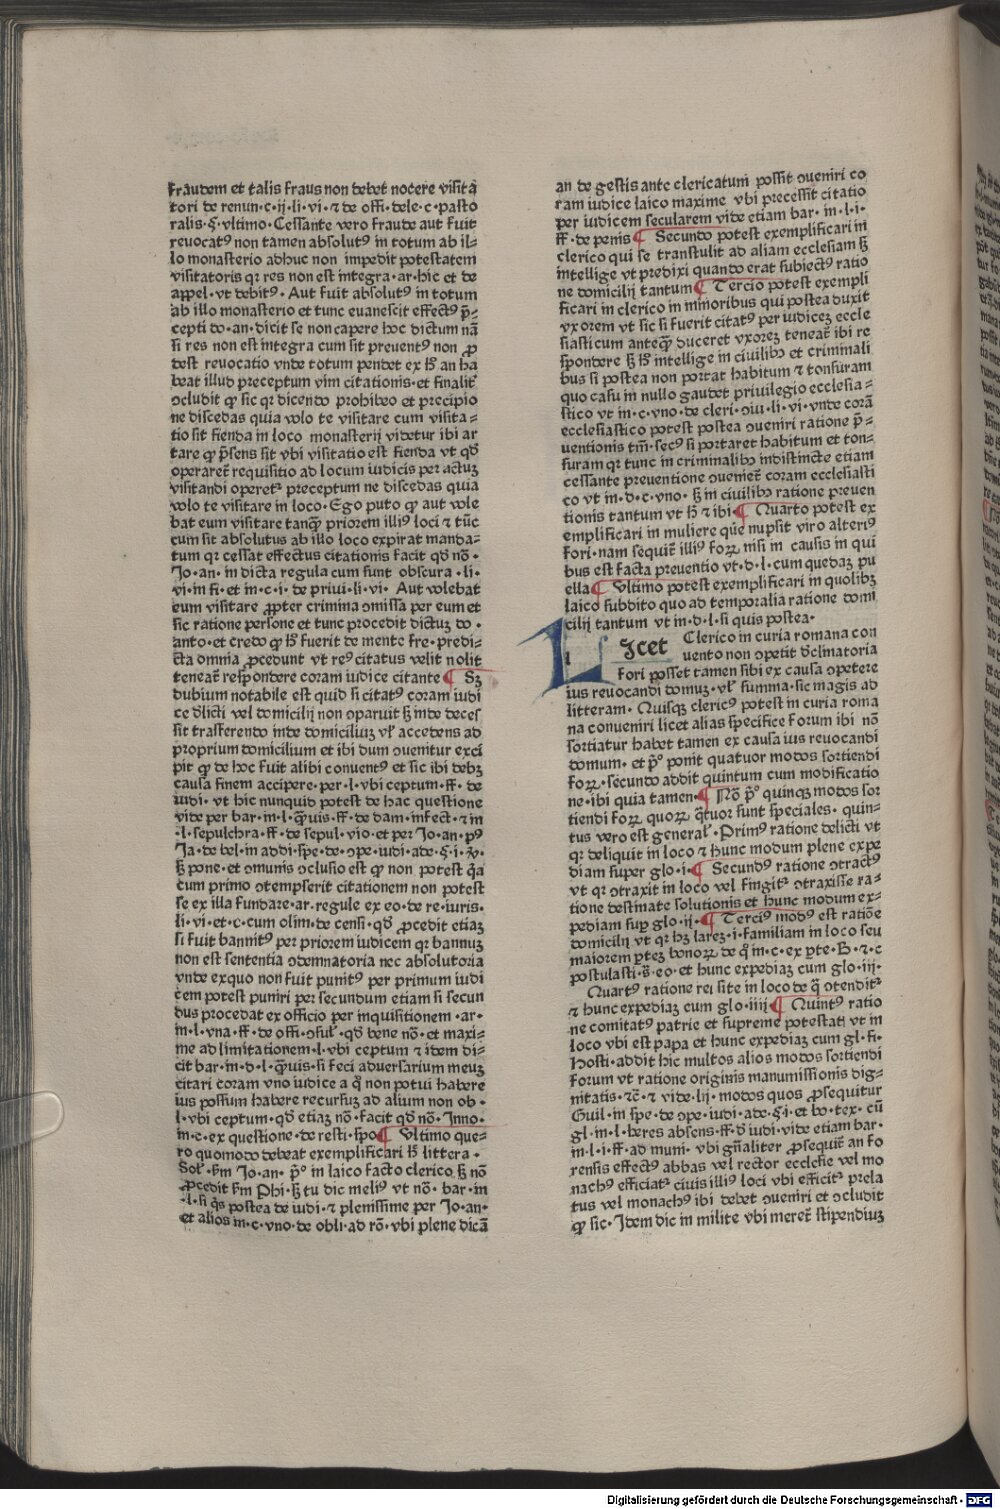 fraudem et talis fraus non debet nocere visitā
tori de renun·c·ij·li·vi·⁊ de offi·dele·c·pasto
ralis·§·vltimo·Cessante vero fraude aut fuit
reuocatꝰ non tamen absolutꝰ in totum ab il⸗
lo monasterio adhuc non impedit potestatem
visitatoris qꝛ res non est integra·ar·hic et de
appel·vt debitꝰ·Aut fuit absolutꝰ in totum
ab illo monasterio et tunc euanescit effectꝰ p̄⸗
cepti do·an·dicit se non capere hoc dictum nā
si res non est integra cum sit preuentꝰ non ꝓ
dest reuocatio vnde totum pendet ex hꝭ an ha
beat illud preceptum vim citationis·et finalit̄
ↄcludit ꝙ sic qꝛ dicendo prohibeo et precipio
ne discedas quia volo te visitare cum visita⸗
tio sit fienda in loco monasterij videtur ibi ar
tare ꝙ p̄sens sit vbi visitatio est fienda vt qd̄
operaret̄ requisitio ad locum iudicis per actuꝫ
visitandi operetꝛ preceptum ne discedas quia
volo te visitare in loco·Ego puto ꝙ aut vole
bat eum visitare tanqꝫ priorem illiꝰ loci ⁊ tūc
cum sit absolutus ab illo loco expirat manda⸗
tum qꝛ cessat effectus citationis facit qd̄ nō·
Jo·an·in dicta regula cum sunt obscura·li·
vi·in fi·et in·c·i·de priui·li·vi·Aut volebat
eum visitare ꝓpter crimina omissa per eum et
sic ratione persone et tunc procedit dictuꝫ do·
anto·et credo ꝙ hꝭ fuerit de mente fre·predi⸗
cta omnia ꝓcedunt vt reꝰ citatus velit nolit
teneat̄ respondere coram iudice citante ¶ Sꝫ
dubium notabile est quid si citatꝰ coram iudi
ce dl̄icti vel domicilij non ↄparuit sꝫ inde deces
sit trasferendo inde domiciliuꝫ vl̄ accedens ad
proprium domicilium et ibi dum ↄuenitur exci
pit ꝙ de hoc fuit alibi conuentꝰ et sic ibi debꝫ
causa finem accipere·per·l·vbi ceptum·ff·de
iudi·vt hic nunquid potest de hac questione
vide per bar·in·l·qꝫuis·ff·de dam·infect·⁊ in
·l·sepulchra·ff·de sepul·vio·et per Jo·an·pꝰ
Ja·de bel·in addi·spe·de ↄpe·iudi·ade·§·i·ꝟ·
sꝫ pone·et ↄmunis ↄclusio est ꝙ non potest q̄a
cum primo ↄtempserit citationem non potest
se ex illa fundare·ar·regule ex eo·de re·iuris·
li·vi·et·c·cum olim·de censi·qd̄ ꝓcedit etiaꝫ
si fuit bannitꝰ per priorem iudicem qꝛ bannuꝫ
non est sententia ↄdemnatoria nec absolutoria
vnde exquo non fuit punitꝰ per primum iudi
cem potest puniri per secundum etiam si secun
dus procedat ex officio per inquisitionem·ar·
in·l·vna·ff·de offi·ↄsul̄·qd̄ bene nō·et maxi⸗
me ad limitationem·l·vbi ceptum ⁊ idem di⸗
cit bar·in·d·l·qꝫuis·si feci aduersarium meuꝫ
citari coram vno iudice a q̄ non potui habere
ius possum habere recursuꝫ ad alium non ob·
·l·vbi ceptum·qd̄ etiaꝫ nō·facit qd̄ nō·Inno·
in·c·ex questione·de resti·spo ¶ Vltimo que⸗
ro quomodo debeat exemplificari hꝭ littera·
Sol̄·sm̄ Jo·an·p̄o in laico facto clerico·sꝫ nō
ꝓcedit sm̄ Phi·sꝫ tu dic meliꝰ vt nō·bar·in
·l·si q̄s postea de iudi·⁊ plenissime per Jo·an·
et alios in·c·vno·de obli·ad rō·vbi plene dicā
an de gestis ante clericatum possit ↄueniri co
ram iudice laico maxime vbi precessit citatio
per iudicem secularem vide etiam bar·in·l·i·
ff·de penis ¶ Secundo potest exemplificari in
clerico qui se transtulit ad aliam ecclesiam sꝫ
intellige vt predixi quando erat subiectꝰ ratio
ne domicilij tantum ¶ Tercio potest exempli
ficari in clerico in minoribus qui postea duxit
vxorem vt sic si fuerit citatꝰ per iudiceꝫ eccle
siasticum anteqꝫ duceret vxoreꝫ teneat̄ ibi re
spondere sꝫ hꝭ intellige in ciuilibꝰ et criminali
bus si postea non portat habitum ⁊ tonsuram
quo casu in nullo gaudet priuilegio ecclesia⸗
stico vt in·c·vno·de cleri·ↄiu·li·vi·vnde corā
ecclesiastico potest postea ↄueniri ratione p̄⸗
uentionis tm̄·secꝰ si portaret habitum et ton⸗
suram qꝛ tunc in criminalibꝰ indistincte etiam
cessante preuentione ↄueniet̄ coram ecclesiasti
co vt in·d·c·vno·sꝫ in ciuilibꝰ ratione preuen
tionis tantum vt hꝭ ⁊ ibi ¶ Quarto potest ex
emplificari in muliere que nupsit viro alteriꝰ
fori·nam sequit̄ illiꝰ foꝝ nisi in causis in qui
bus est facta preuentio vt·d·l·cum quedaꝫ pu
ella ¶ Vltimo potest exemplificari in quolibꝫ
laico subdito quo ad temporalia ratione domi
cilij tantum vt in·d·l·si quis postea·
LIcet Clerico in curia romana con
uento non ↄpetit dl̄inatoria
fori posset tamen sibi ex causa ↄpetere
ius reuocandi domuꝫ·vl̄ summa·sic magis ad
litteram·Quisqꝫ clericꝰ potest in curia roma
na conueniri licet alias specifice forum ibi nō
sortiatur habet tamen ex causa ius reuocandi
domum·et p̄o ponit quatuor modos sortiendi
foꝝ·secundo addit quintum cum modificatio
ne·ibi quia tamen ¶ Nō p̄o quinqꝫ modos sor
tiendi foꝝ quoꝝ q̄tuor sunt speciales·quin⸗
tus vero est general̄·Primꝰ ratione delicti vt
qꝛ deliquit in loco ⁊ hunc modum plene expe
diam super glo·i·¶ Secundꝰ ratione ↄtractꝰ
vt qꝛ ↄtraxit in loco vel fingit̄ ↄtraxisse ra⸗
tione destinate solutionis et hunc modum ex⸗
pediam suꝑ glo·ij·¶ Terciꝰ modꝰ est ratiōe
domicilij vt qꝛ hꝫ lareꝫ·i·familiam in loco seu
maiorem ꝑteꝫ bonoꝝ de q̄ in·c·ex ꝑte·B·⁊·c
postulasti·s̄·eo·et hunc expediaꝫ cum glo·iij·
Quartꝰ ratione rei site in loco de q̄ ↄtendit̄
⁊ hunc expediaꝫ cum glo·iiij ¶ Quintꝰ ratio
ne comitatꝰ patrie et supreme potestati vt in
loco vbi est papa et hunc expediaꝫ cum gl·fi·
Hosti·addit hic multos alios modos sortiendi
forum vt ratione originis manumissionis dig⸗
nitatis·⁊c̄·⁊ vide·lij·modos quos ꝓsequitur
Guil·in spe·de ↄpe·iudi·ade·§·i·et do·tex·cū
gl·in·l·heres absens·ff·d̄ iudi·vide etiam bar·
in·l·i·ff·ad muni·vbi gn̄aliter ꝓsequit̄ an fo
rensis effectꝰ abbas vel rector ecclesie vel mo
nachꝰ efficiat̄ ciuis illiꝰ loci vbi efficit̄ prela
tus vel monachꝰ ibi debet ↄueniri et ↄcludit
ꝙ sic·Idem dic in milite vbi meret̄ stipendiuꝫ
Digitalisierung gefördert durch die Deutsche Forschungsgemeinschaft - DFG